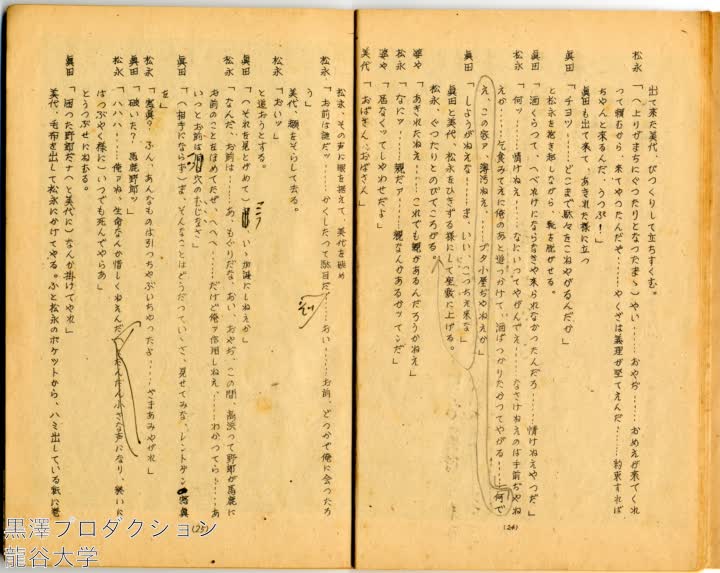 出て来た美代、びつくりして立ちすくむ。
松永「(上りがまちにぐつたりとなつたまゝ)やい……おやぢ……おめえが来てくれ
つて頼むから、来てやつたんだぞ……やくざは義理が堅てえんだ……約束すれば
ちやんと来るんだ、うつぷ!」
眞田も出て来て、あきれた様に立つ
眞田「チヨツ……どこまで駄々をこねやがるんだか」
と松永を抱き起しながら、靴を脱がせる。
眞田「酒くらつて、へべれけにならなきや来られなかつたんだろ……情けねえやつだ」
松永「何ッ……情けねえ……なにいつてやがんでえ……なさけねえのは手前ぢやね
えか……乞食みてえに俺のあと追つかけて、酒ばつかりたかつてやがる……何で
え、この家ァ 薄汚ねえ……ブタ小屋ぢやねえか」
眞田「しようがねえな……ま、いい、こつちえ来な」
眞田と美代、松永をひきずる様にして座敷に上げる。
松永、ぐつたりとのびてころがる。
婆や「あきれたねえ……これでも親があるんだろうかねえ」
松永「なにァ……親だァ……親なんかあるかッてンだ」
婆や「居なくッてしやわせだよ」
美代「おばさん、おばさん」
(24)
松永、その声に眼を据えて、美代を眺め
松永「お前は誰だッ……かくしたつて駄目だ……おい……お前、どつかで俺に会つたろ
う」
美代、顔をそらして去る。
松永「おいッ」
と追おうとする。
眞田「(それを見とがめて)おい、いゝ加減にしねえか」
松永「なんだ、お前は……あ、もぐりだな、おい、おやぢ、この間、高浜つて野郎が馬鹿に
お前のことをほめてたぜ、へへへ……だけど俺ァ信用しねえ……わかつてら……あ
いつとお前は 洞穴のむじなさ」
眞田「(相手にならず)ま、そんなことはどうだつていゝさ、見せてみな、レントゲン写真
を」
松永「写真? ふん、あんなものは引つちやぶいちやつたよ……やまあみやがれ」
眞田「破いた? 馬鹿野郎ッ」
松永「ハハハ……俺ァね、生命なんか惜しくねえんだ(だんだん小さな声になり、終いに
はつぶやく様に)いつでも死んでやらあ」
とうつぶせにねむる。
眞田「困つた野郎だナ(と美代に)なんか掛けてやれ」
美代、毛布を出して松永にかけてやる。ふと松永のポケットから、ハミ出している紙に巻
(25)
黒澤プロダクション
龍谷大学